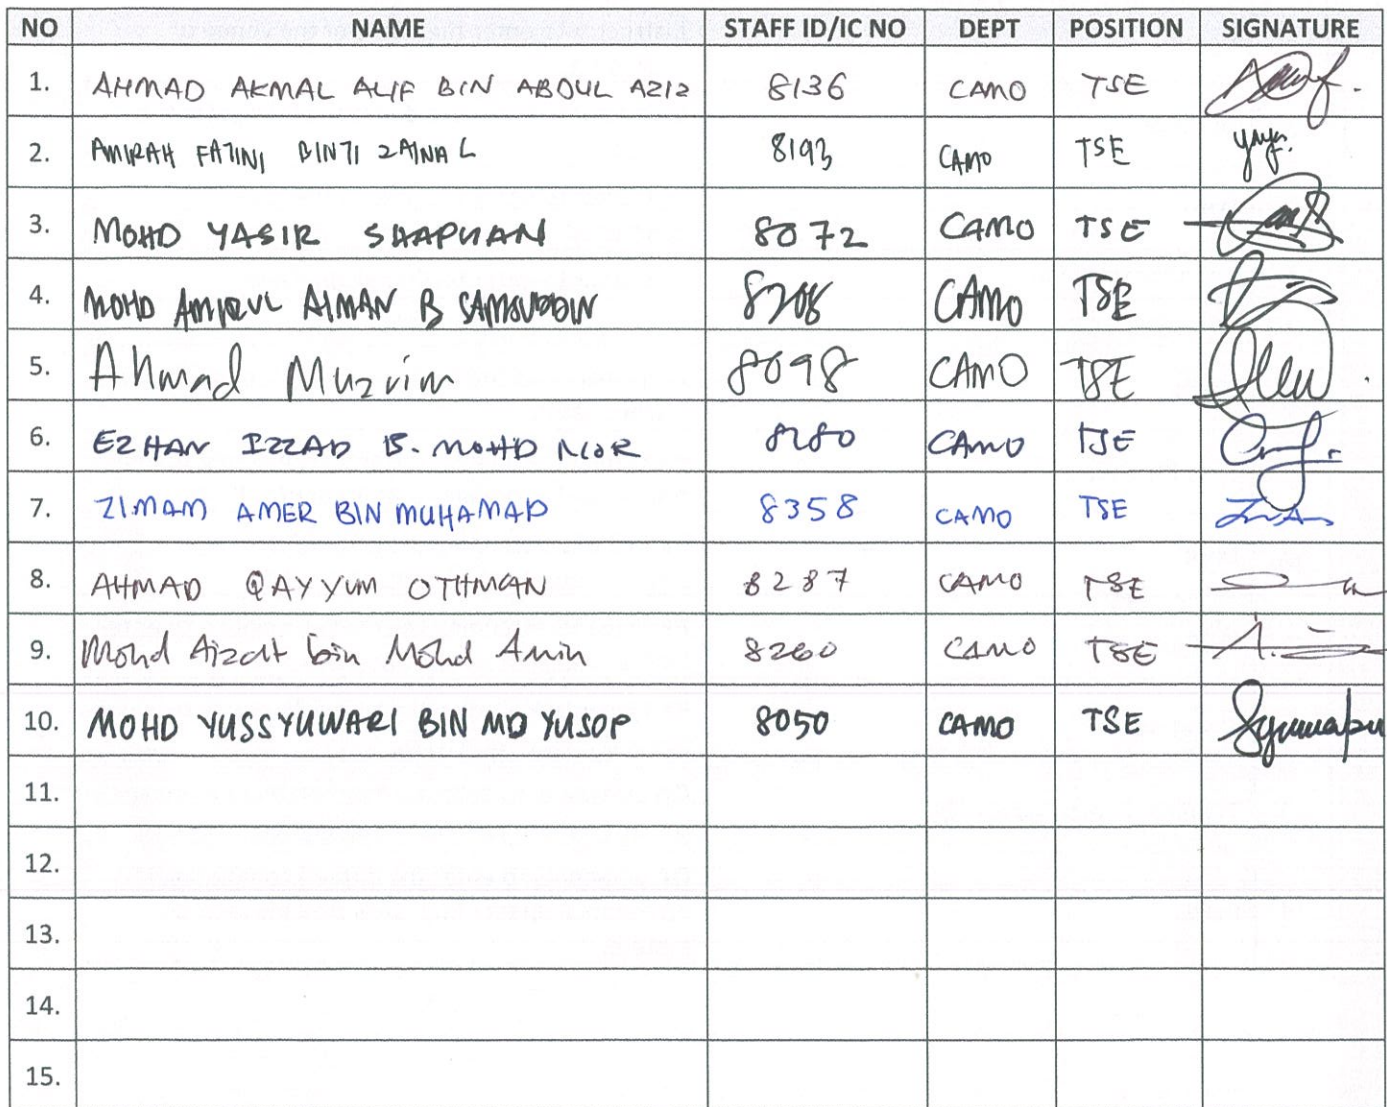 NO NAME STAFF ID/IC NO DEPT POSITION SIGNATURE
1. AHMAD AKMAL ALIF BIN ABDUL AZIZ 8136 CAMO TSE
2. AMIRAH FATINI BINTI ZAINAL 8193 CAMO TSE
3. MOHD YASIR SHAPUAN 8072 CAMO TSE
4. MOHD AMIRUL AIMAN B SAMSUDDIN 8208 CAMO TSE
5. Ahmad Muzrim 8098 CAMO TSE
6. EZHAN IZZAD B. MOHD NOR 8280 CAMO TSE
7. ZIMAM AMER BIN MUHAMAD 8358 CAMO TSE
8. AHMAD QAYYUM OTHMAN 8287 CAMO TSE
9. Mohd Aizat bin Mohd Amin 8260 CAMO TSE
10. MOHD YUSSYUWARI BIN MD YUSOP 8050 CAMO TSE
11.
12.
13.
14.
15.